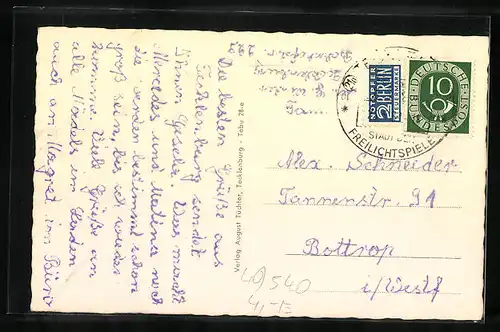 Die besten Grüße aus
Tecklenburg sendet
Ihnen Gisela. Was macht
Mercedes und Melina noch
die werden bestimmt schon
groß sein bis ich wieder
komme. Viele Grüße an
alle Mädels im Laden
auch an Magret im Büro
Verlag August Tüchter, Tecklenburg - Tebu 28a
NOTOPFER
2 BERLIN
STEUERMARKE
DEUTSCHE
10
BUNDESPOST
STADT DER
FREILICHTSPIELE
Alex. Schneider
Tannenstr. 91
Bottrop
i/Westf